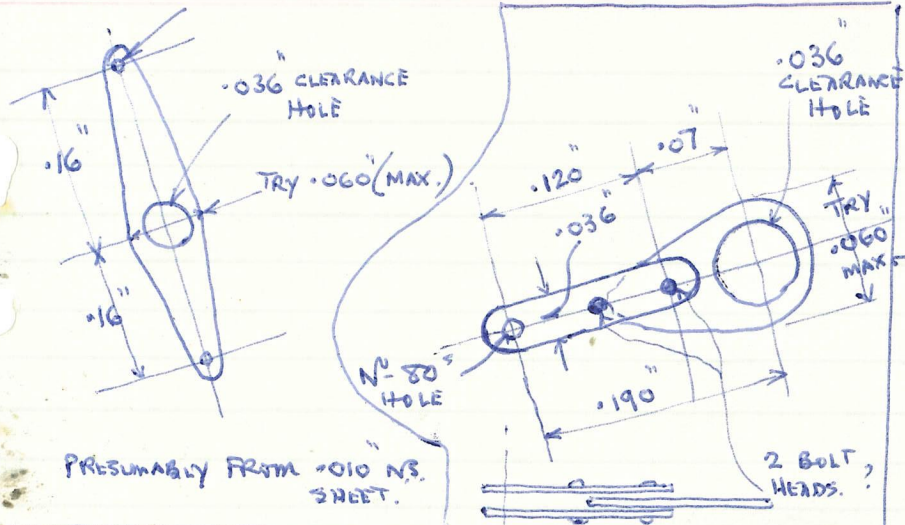 .036" CLEARANCE
HOLE
.16"
TRY .060" (MAX.)
.16"
PRESUMABLY FROM .010" N.S.
SHEET.
.036"
CLEARANCE
HOLE
.07"
.120"
.036"
TRY
.060"
MAX
Nº 80
HOLE
.190"
2 BOLT
HEADS. ?